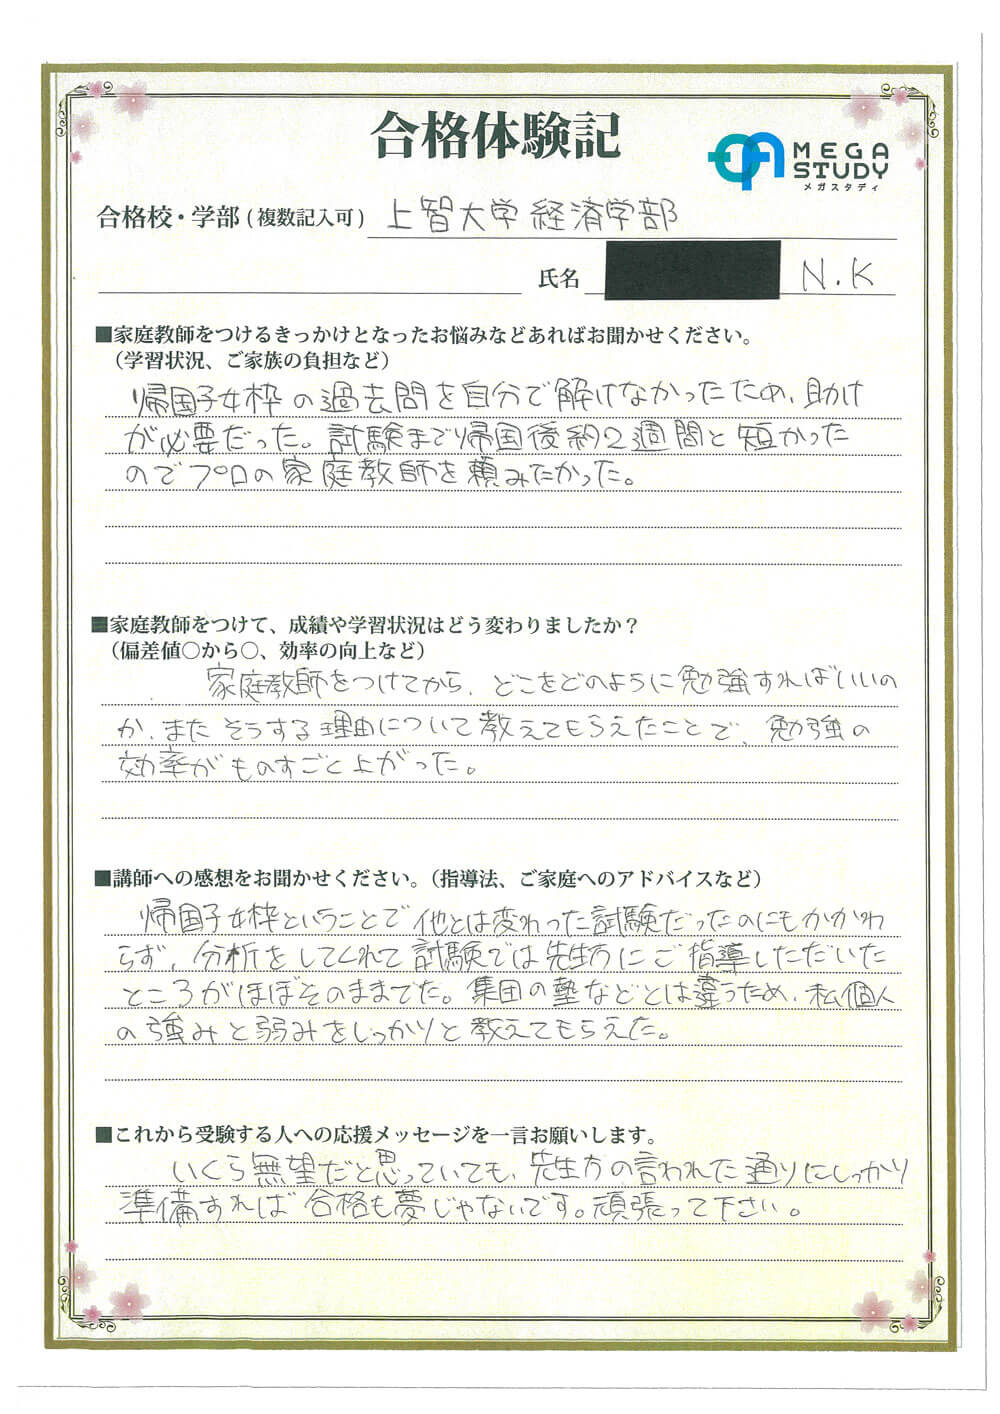 合格体験記
MEGA
STUDY
メガスタディ
合格校・学部(複数記入可) 上智大学 経済学部
氏名 N.K
■家庭教師をつけるきっかけとなったお悩みなどあればお聞かせください。
(学習状況、ご家族の負担など)
帰国子女枠の過去問を自分で解けなかったため、助け
が必要だった。試験まで帰国後約2週間と短かった
のでプロの家庭教師を頼みたかった。
■家庭教師をつけて、成績や学習状況はどう変わりましたか?
(偏差値〇から〇、効率の向上など)
家庭教師をつけてから、どこをどのように勉強すればいいの
か、またそうする理由について教えてもらえたことで、勉強の
効率がものすごく上がった。
■講師への感想をお聞かせください。(指導法、ご家庭へのアドバイスなど)
帰国子女枠ということで他とは変わった試験だったのにもかかわ
らず、分析をしてくれて試験では先生方にご指導しただいた
ところがほぼそのままでた。集団の塾などとは違うため、私個人
の強みと弱みをしっかりと教えてもらえた。
■これから受験する人への応援メッセージを一言お願いします。
いくら無望だと思っていても、先生方の言われた通りにしっかり
準備すれば合格も夢じゃないです。頑張って下さい。